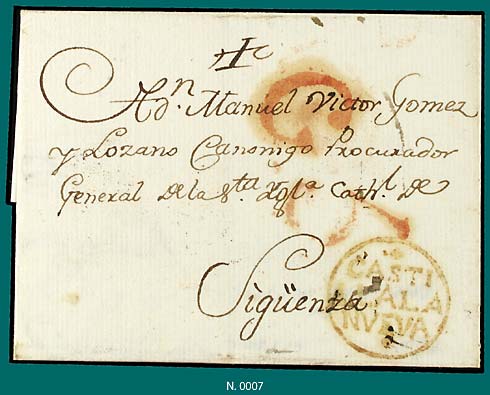 A dn. Manuel Victor Gomez
y Lozano Canonigo Procurador
General de la Sta Igla. Cathl. de
Sigüenza
CASTI
LLALA
NUEVA
N. 0007